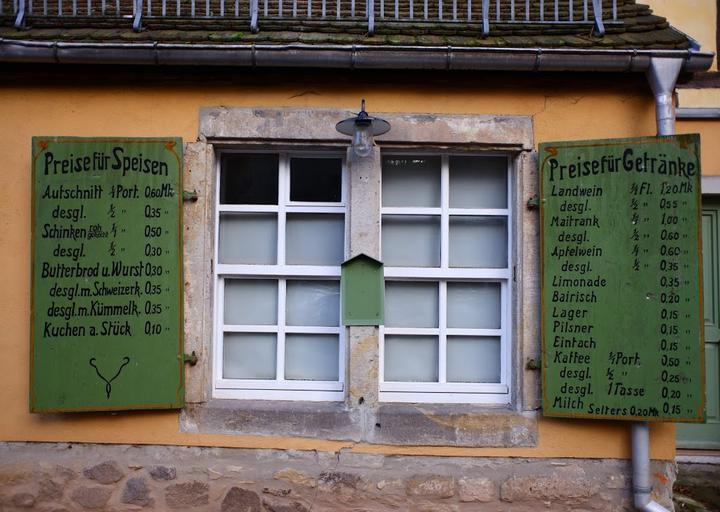 Preise für Speisen
Aufschnitt ¹/₁ Port. 0,60 Mk
desgl. ½ " 0,35 "
Schinken roh gekocht ¹/₁ " 0,50 "
desgl. ½ " 0,30 "
Butterbrod u. Wurst 0,30 "
desgl. m. Schweizerk. 0,35 "
desgl. m. Kümmelk. 0,35 "
Kuchen a. Stück 0,10 "
Preise für Getränke
Landwein ¹/₁ Fl. 1,20 Mk
desgl. ½ " 0,55 "
Maitrank ¹/₁ " 1,00 "
desgl. ½ " 0,60 "
Apfelwein ¹/₁ " 0,60 "
desgl. ½ " 0,35 "
Limonade 0,35 "
Bairisch 0,20 "
Lager 0,15 "
Pilsner 0,15 "
Einfach 0,15 "
Kaffee ¹/₁ Port. 0,50 "
desgl. ½ " 0,25 "
desgl. 1 Tasse 0,20 "
Milch Selters 0,20 Mk 0,15 "